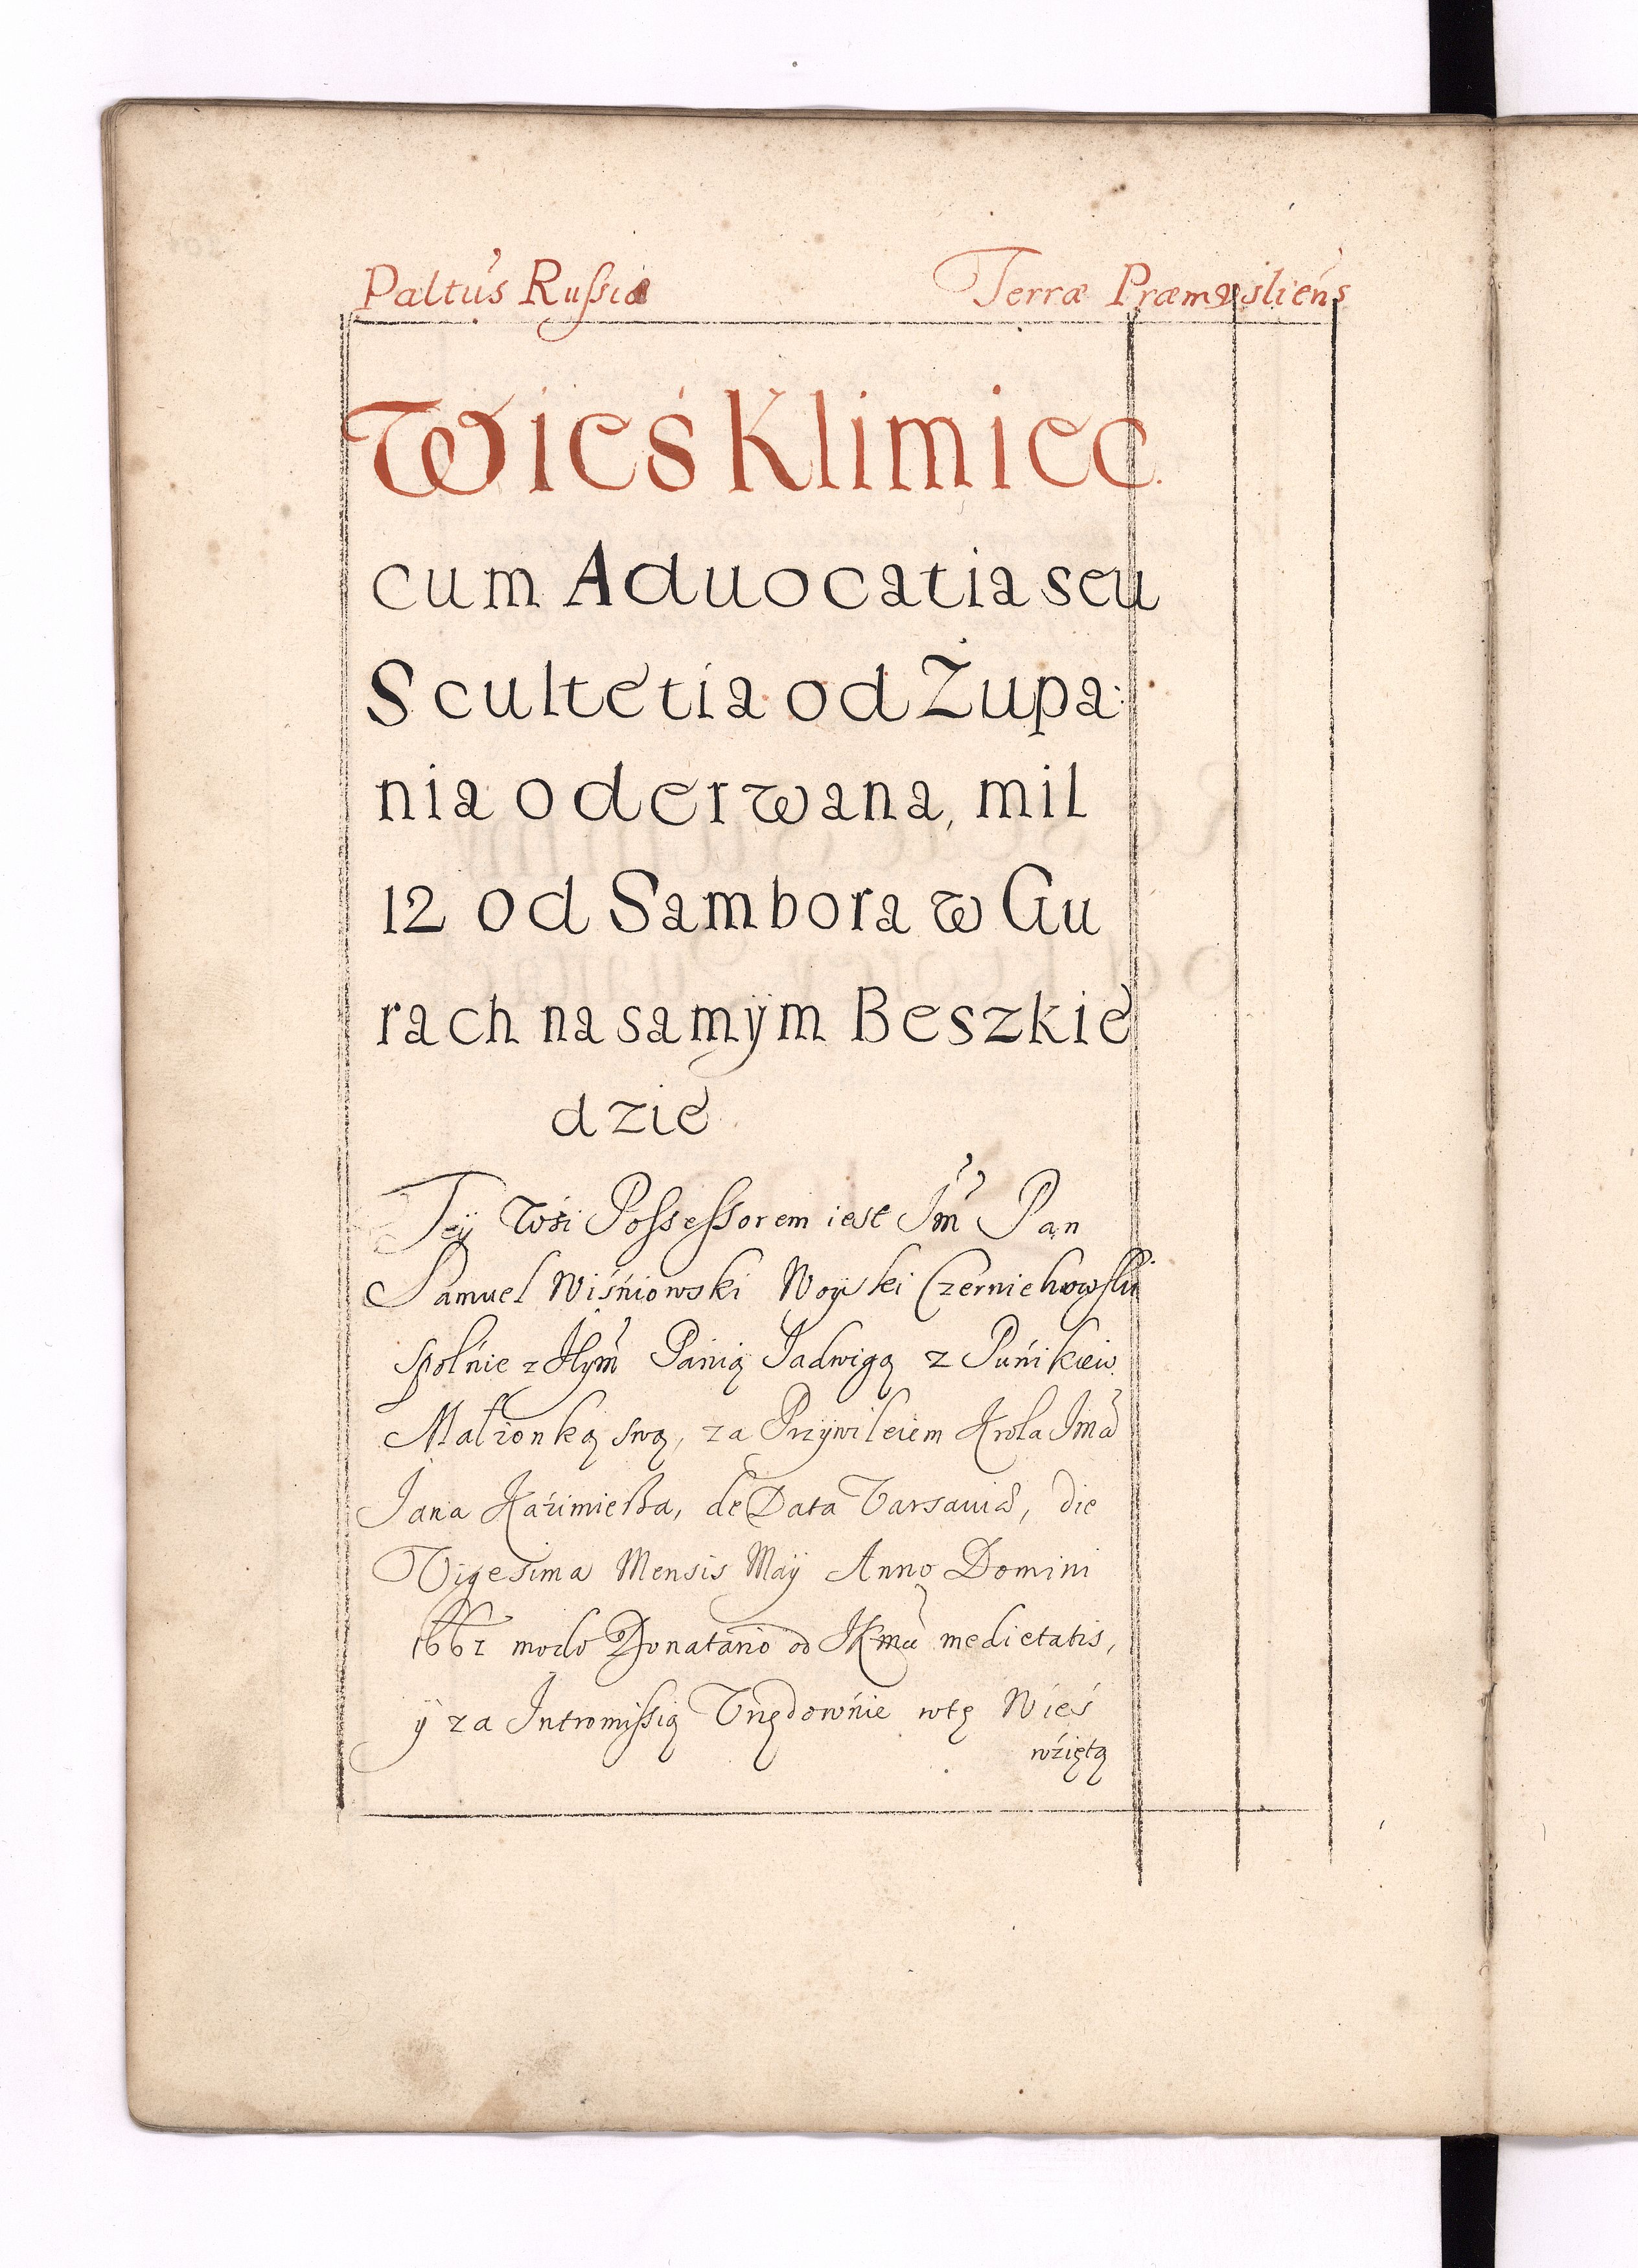 Paltus Russiæ Terræ Præmysliens
Wieś Klimiec.
cum Aduocatia seu
Scultetia od Żupa:
nia oderwana, mil
12 od Sambora w Gu
rach na samÿm Beszkie
dzie.
Teÿ Wśi Possessorem iest Jm Pan
Samuel Wiśniowski Woÿski Czerniehowski
spolńie z Panią Jadwigą z Puńikiew.
Małżonką swą, za Przÿwileiem Krola Jmci
Jana Kaźimierza, de Data Varsaviæ, die
Vigesima Mensis Maÿ Anno Domini
1661 modo Donatario od JKmci medietatis,
ÿ za Intromissią Vrzędowńie wtę Wieś
wźiętą